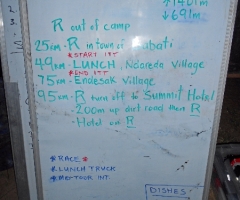 ↑1401m
↓691m
R out of camp
25km - R in town of Babati
* START ITT
49km - LUNCH, Ndareda Village
* END ITT
75km - Endesak Village
95km - R turn off to Summit Hotel
- 200m up dirt road then R
Hotel on R
* RACE *
* LUNCH TRUCK
DISHES: